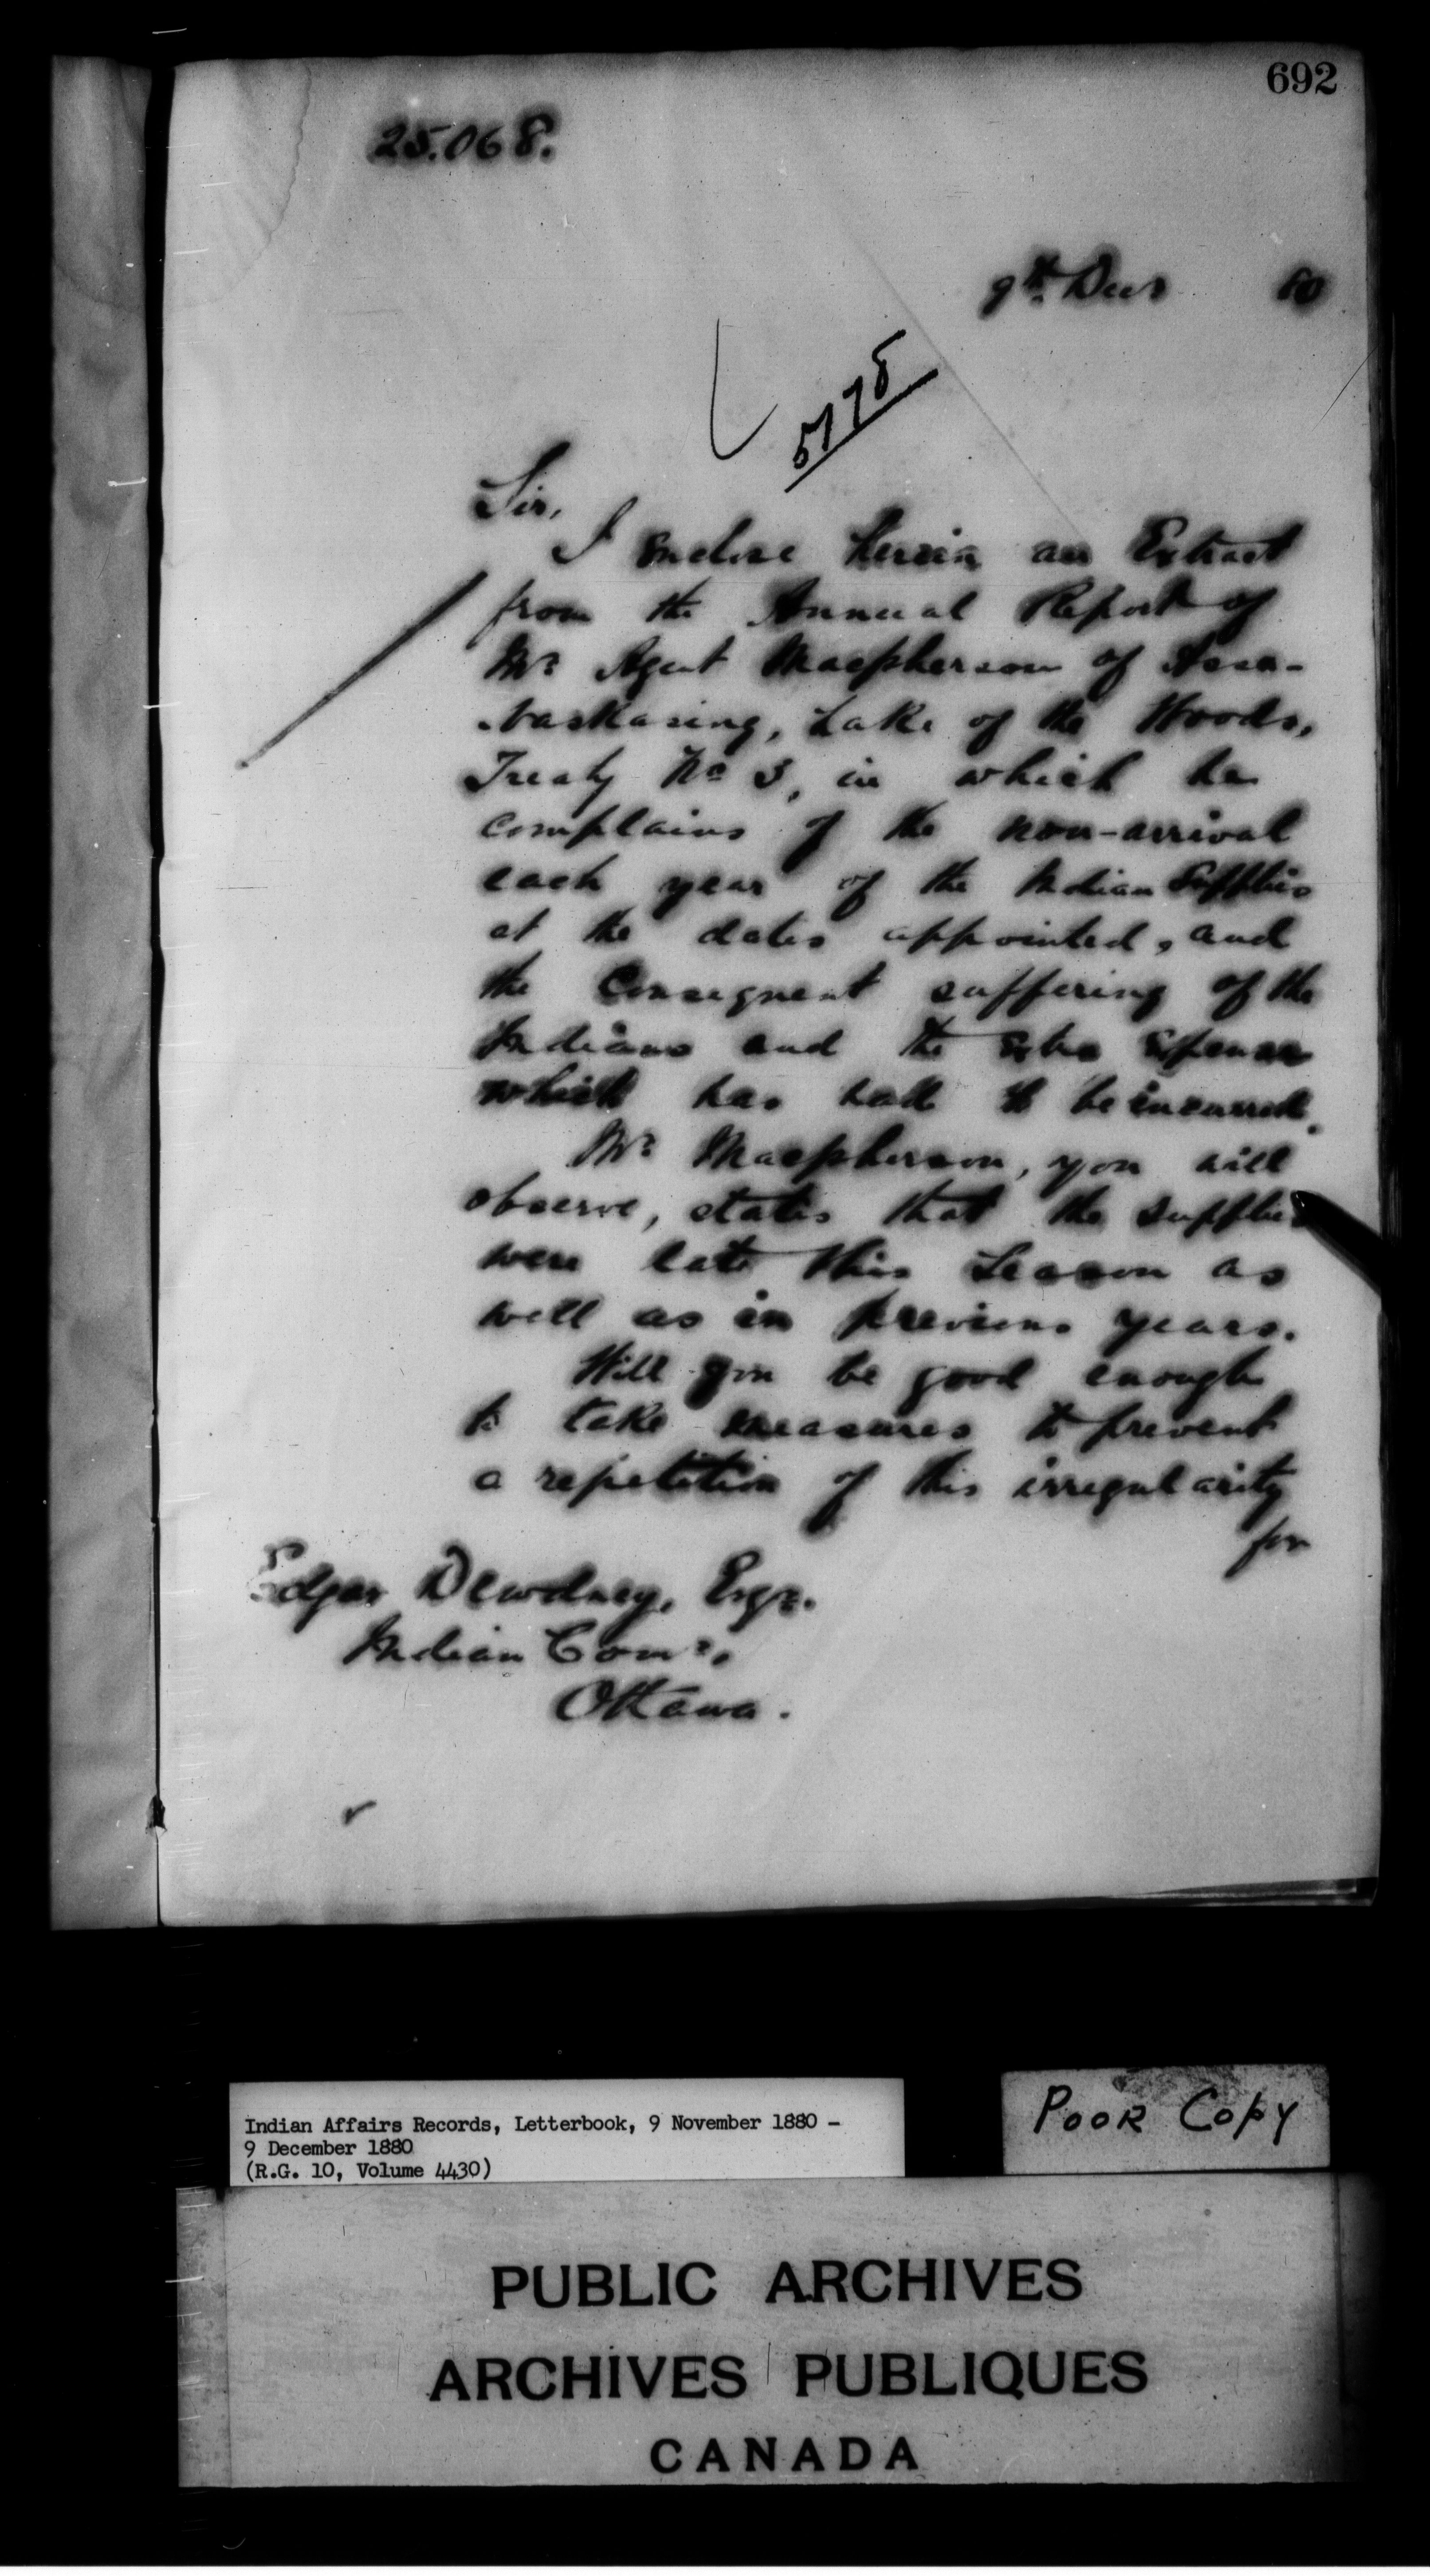 692
25.068.
9th. Decr 80
5775
Sir,
I enclose herein an Extract
from the Annual Report of
Mr. Agent Macpherson of Assa-
-baskasing, Lake of the Woods,
Treaty No 3, in which he
complains of the non-arrival
each year of the Indian Supplies
at the dates appointed, and
the Consequent suffering of the
Indians and the Extra Expense
which has had to be incurred.
Mr. Macpherson, you will
observe, states that the supplies
were late this Season as
well as in previous years.
Will you be good enough
to take measures to prevent
a repetition of this irregularity
for
Edgar Dewdney, Esqr.
Indian Comr.,
Ottawa.
Indian Affairs Records, Letterbook, 9 November 1880 -
9 December 1880
(R.G. 10, Volume 4430)
POOR COPY
PUBLIC ARCHIVES
ARCHIVES PUBLIQUES
CANADA